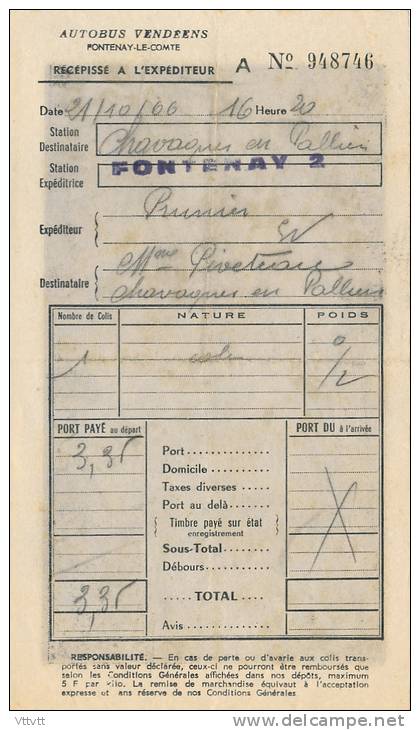 AUTOBUS VENDÉENS
FONTENAY-LE-COMTE
RÉCÉPISSÉ A L'EXPÉDITEUR A Nº 948746
Date 21/10/66 16 Heure 20
Station Destinataire Chavagnes en Paillers
Station Expéditrice FONTENAY 2
Expéditeur Prunier
EV
Destinataire Mme Piveteau
Chavagnes en Paillers
Nombre de Colis NATURE POIDS
1 colis 0/2
PORT PAYÉ au départ PORT DU à l'arrivée
3,35 Port
Domicile
Taxes diverses
Port au delà
Timbre payé sur état
enregistrement
Sous-Total
Débours
3,35 TOTAL
Avis
RESPONSABILITÉ. — En cas de perte ou d'avarie aux colis trans-
portés sans valeur déclarée, ceux-ci ne pourront être remboursés que
selon les Conditions Générales affichées dans nos dépôts, maximum
5 F par kilo. La remise de marchandise équivaut à l'acceptation
expresse et sans réserve de nos Conditions Générales.
Vttvtt
delcampe.net